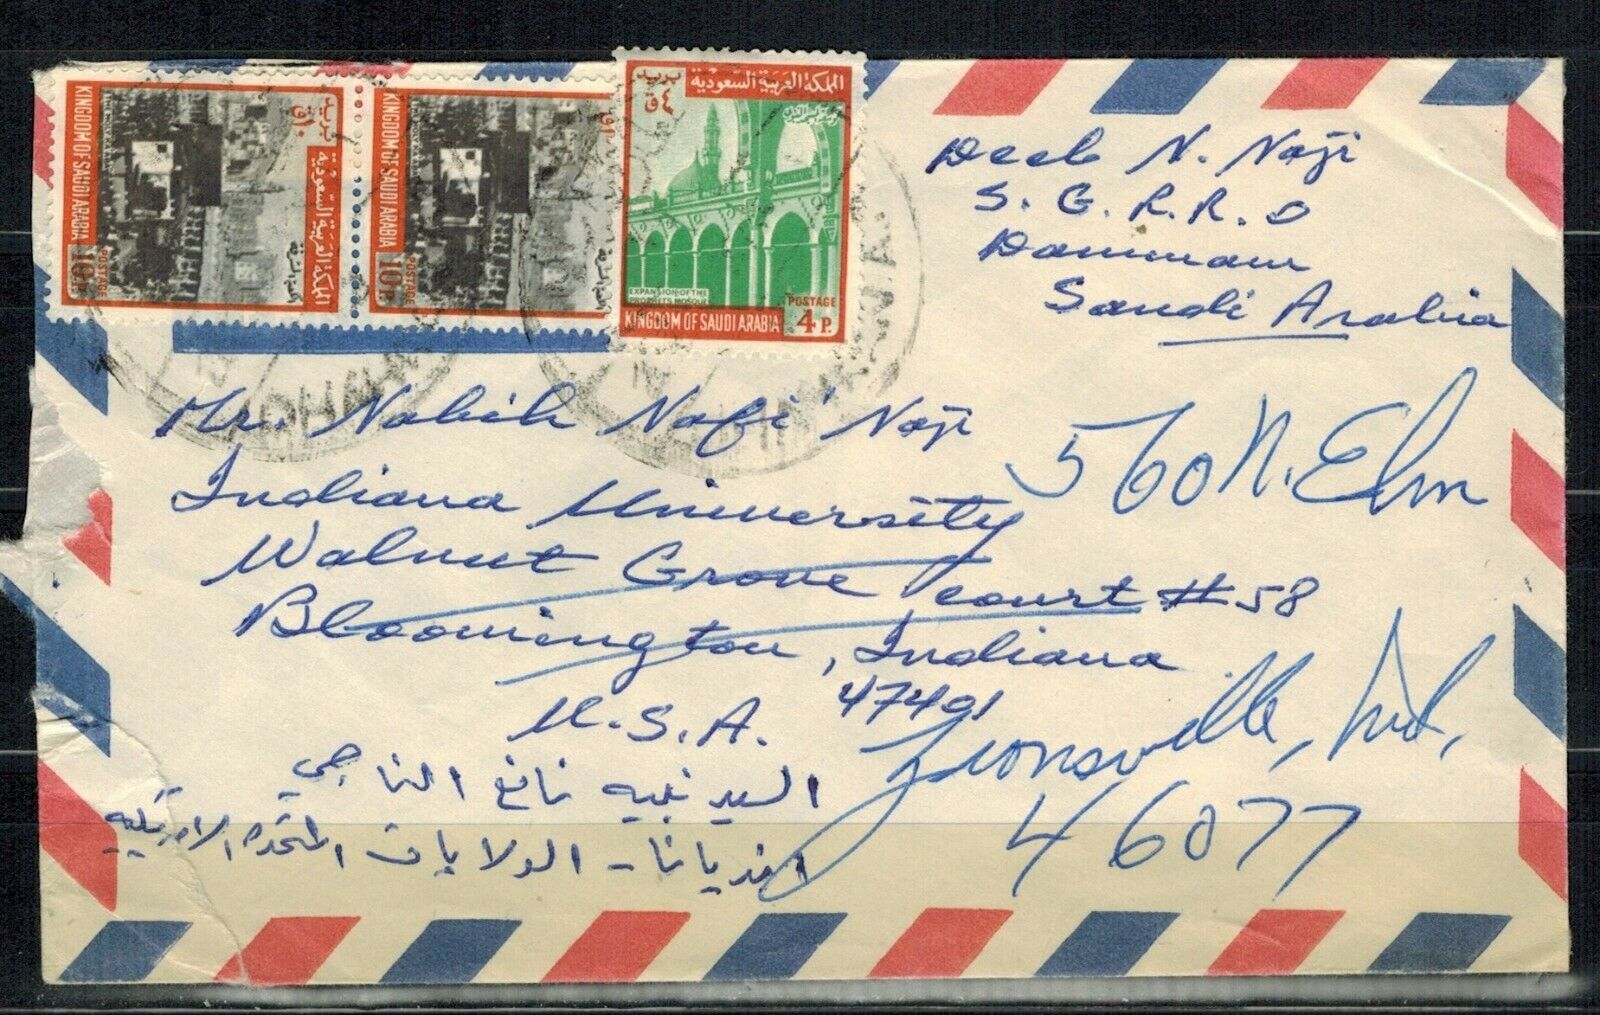 المملكة العربية السعودية
بريد
١٠ق
KINGDOM OF SAUDI ARABIA
POSTAGE
10P.
KINGDOM OF SAUDI ARABIA
POSTAGE
10P.
المملكة العربية السعودية
بريد
٤ق
EXPANSION OF THE
PROPHETS MOSQUE
POSTAGE
4 P.
KINGDOM OF SAUDI ARABIA
Deeb N. Naji
S. G. R. R. O
Dammam
Saudi Arabia
Mr. Nabih Nafi' Naji
Indiana University
Walnut Grove court #58
Bloomington, Indiana
47401
U.S.A.
560 N. Elm
Zionsville, Ind,
46077
السيد نبيه نافع الناجي
انديانا - الولايات المتحدة الامريكية